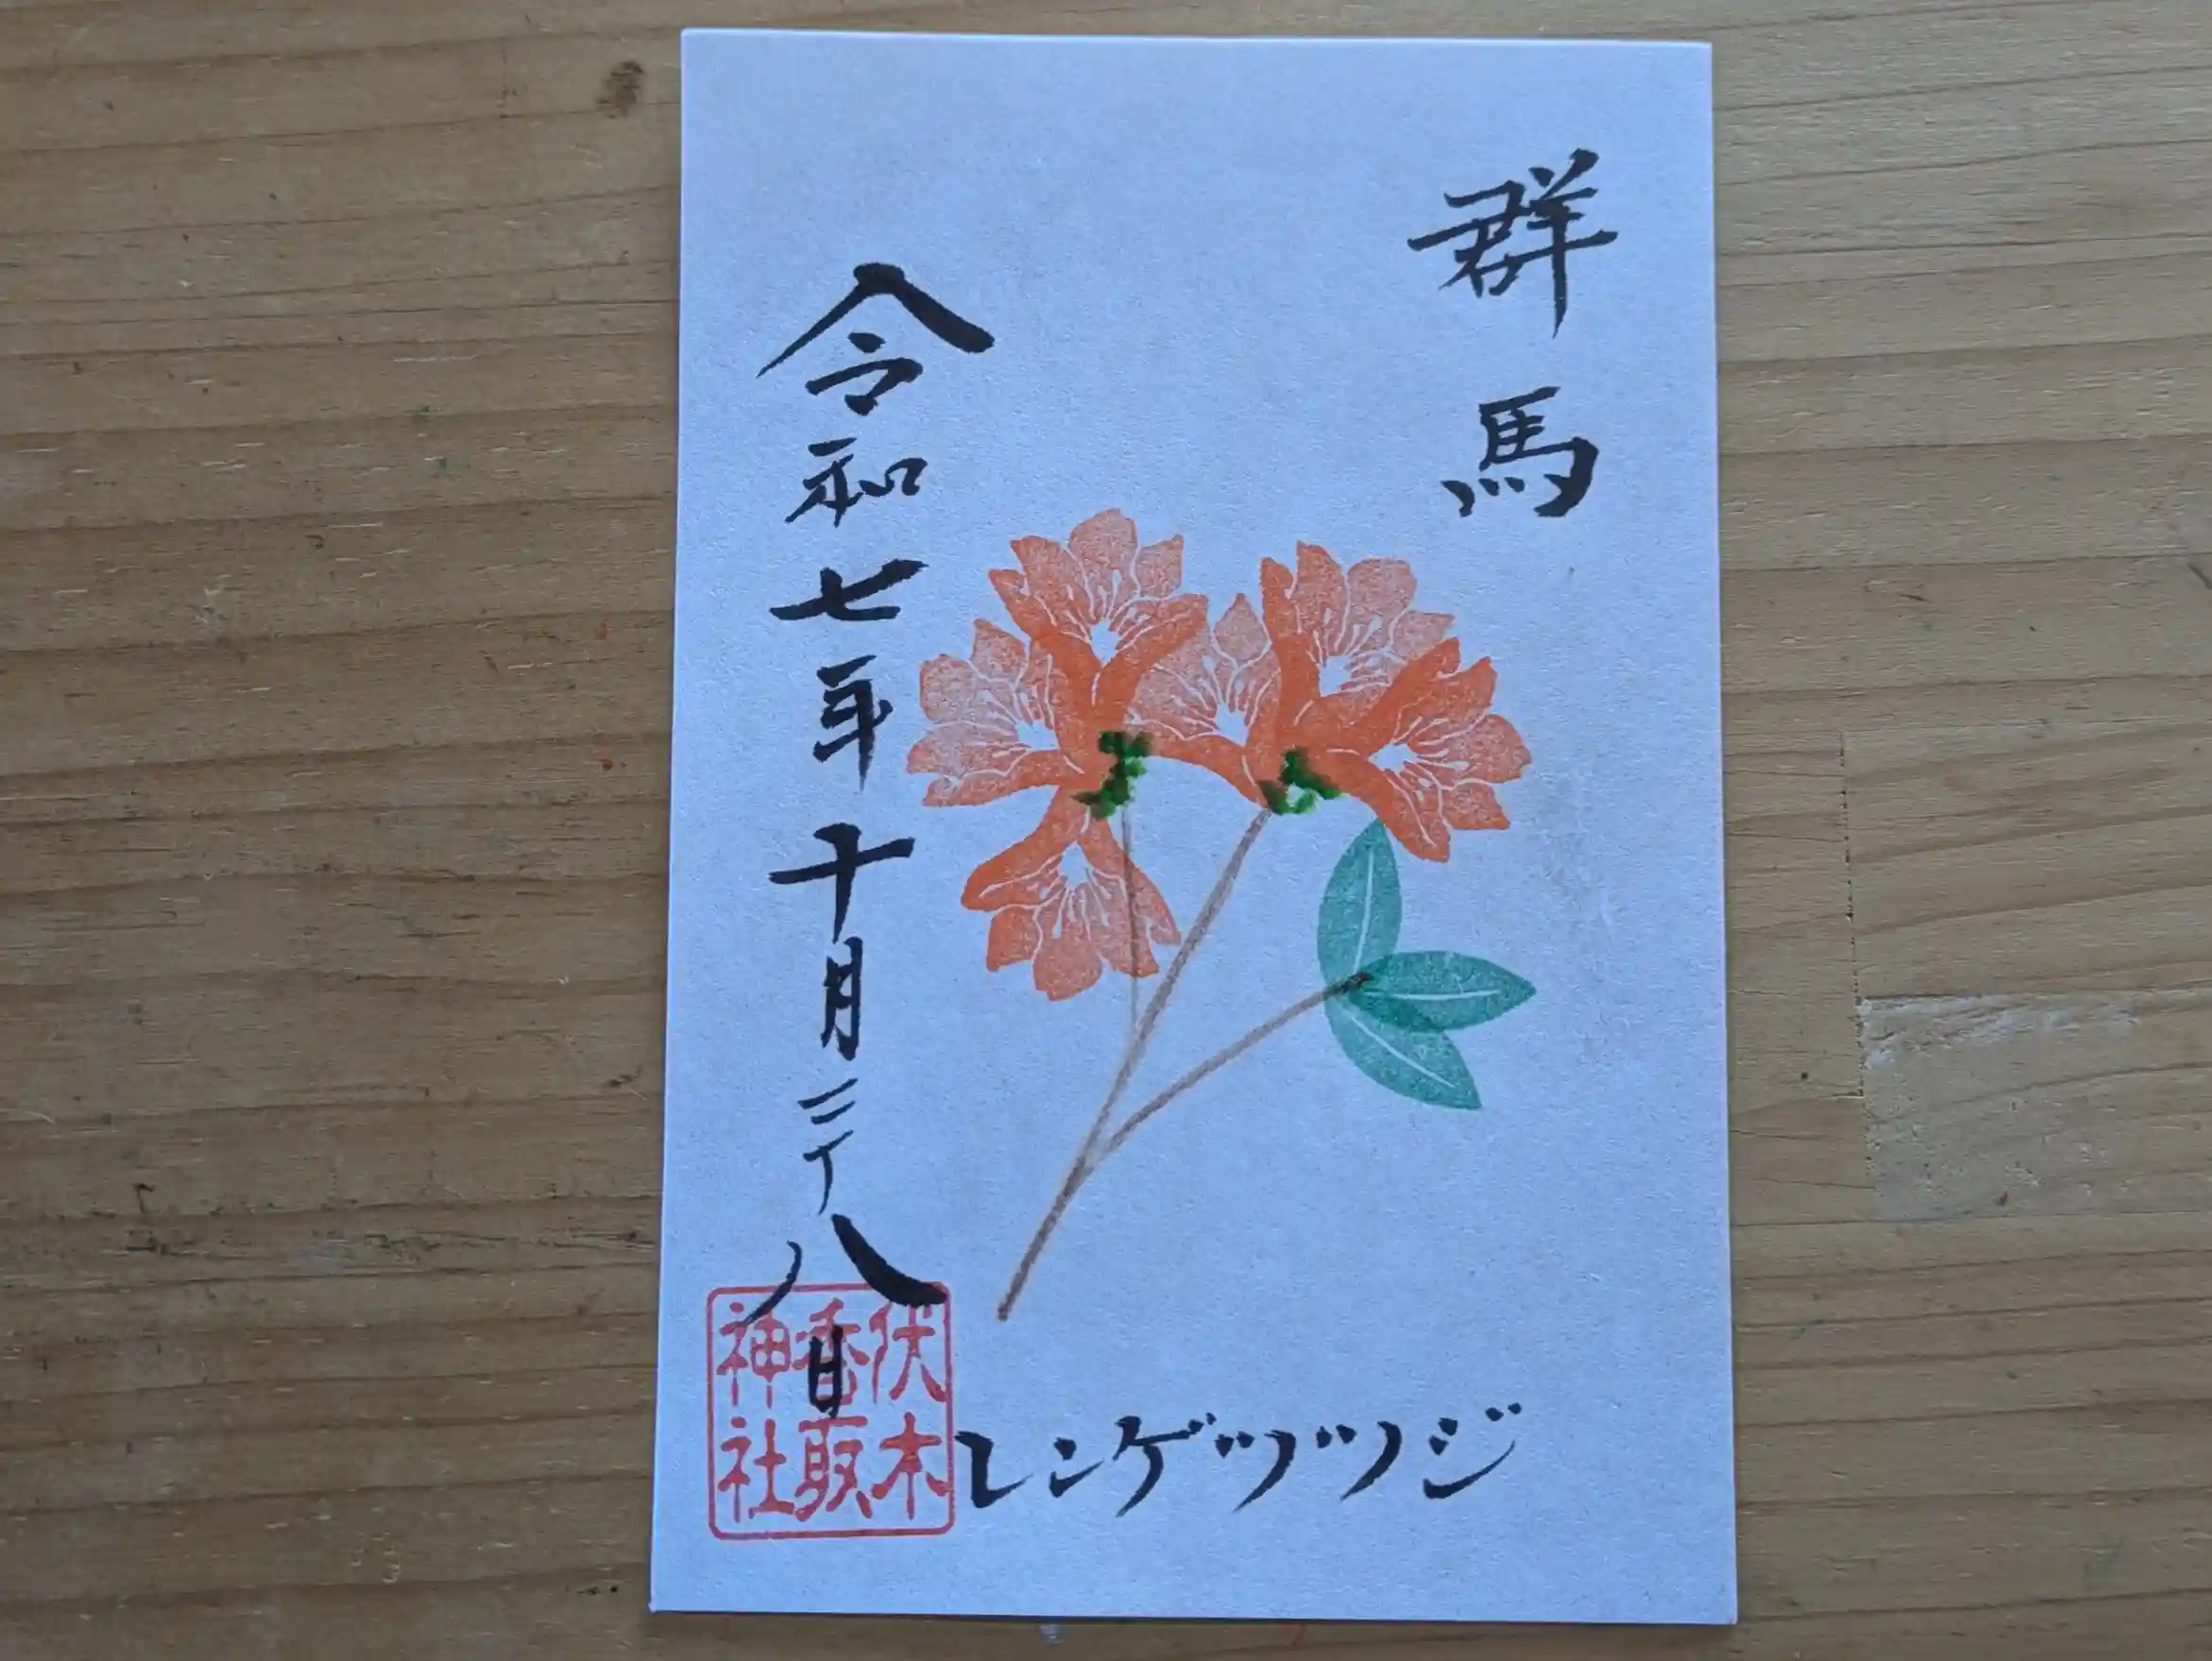 群馬
令和七年十月二十八日
レンゲツツジ
伏木
香取
神社